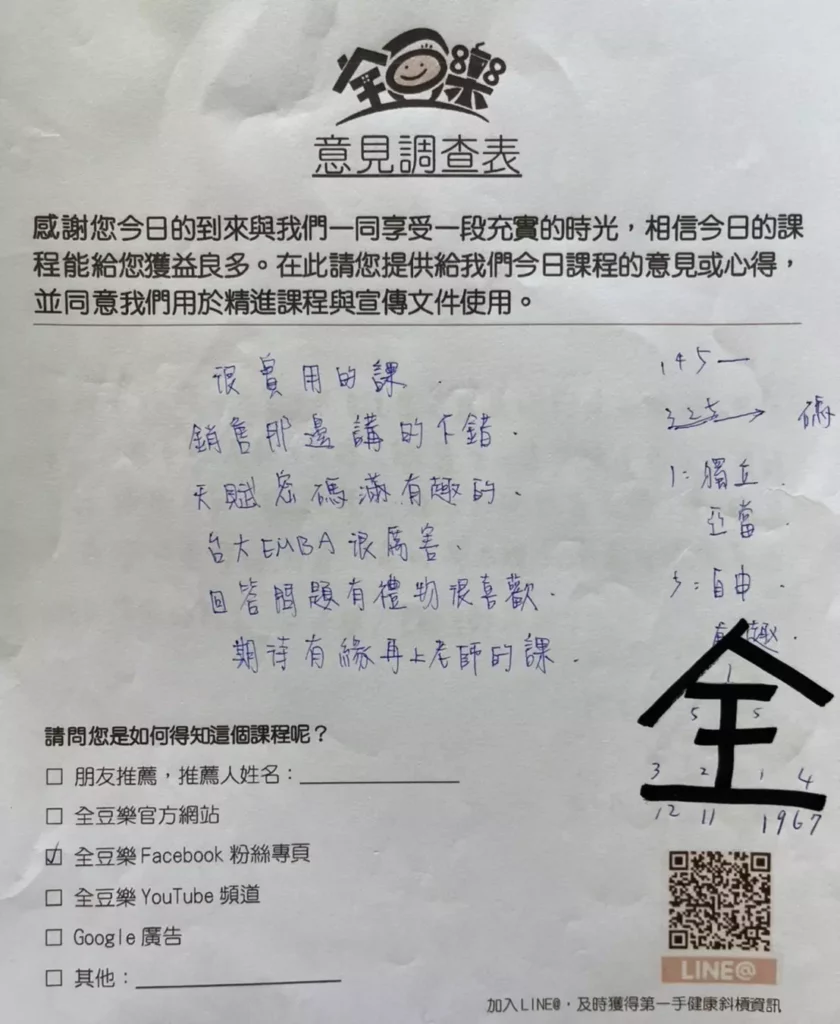 全豆樂
意見調查表
感謝您今日的到來與我們一同享受一段充實的時光，相信今日的課
程能給您獲益良多。在此請您提供給我們今日課程的意見或心得，
並同意我們用於精進課程與宣傳文件使用。
很實用的課．
銷售那邊講的不錯．
天賦密碼滿有趣的．
台大EMBA很厲害．
回答問題有禮物很喜歡．
期待有緣再上老師的課．
145一
325
1：獨立
亞當．
5：自由．
有趣．
1
5 5
3 2 1 4
12 11 1967
請問您是如何得知這個課程呢？
□ 朋友推薦，推薦人姓名：
□ 全豆樂官方網站
☑ 全豆樂Facebook 粉絲專頁
□ 全豆樂YouTube 頻道
□ Google 廣告
□ 其他：
全
LINE@
加入LINE@，及時獲得第一手健康斜槓資訊